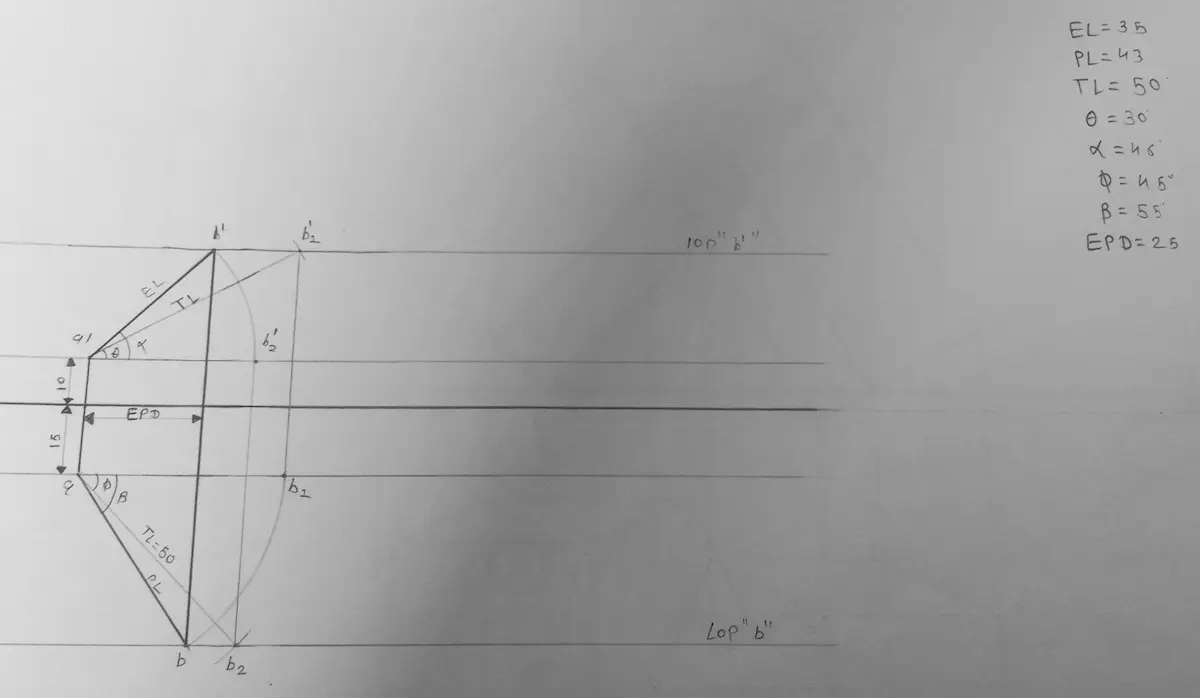 EL=35
PL=43
TL=50
θ=30
α=45
Φ=45°
β=55
EPD=25
b' b'1
10P"b'"
EL
TL
a' θ α b'2
10
EPD
15
a Φ β b1
TL=50
PL
LOP"b"
b b2